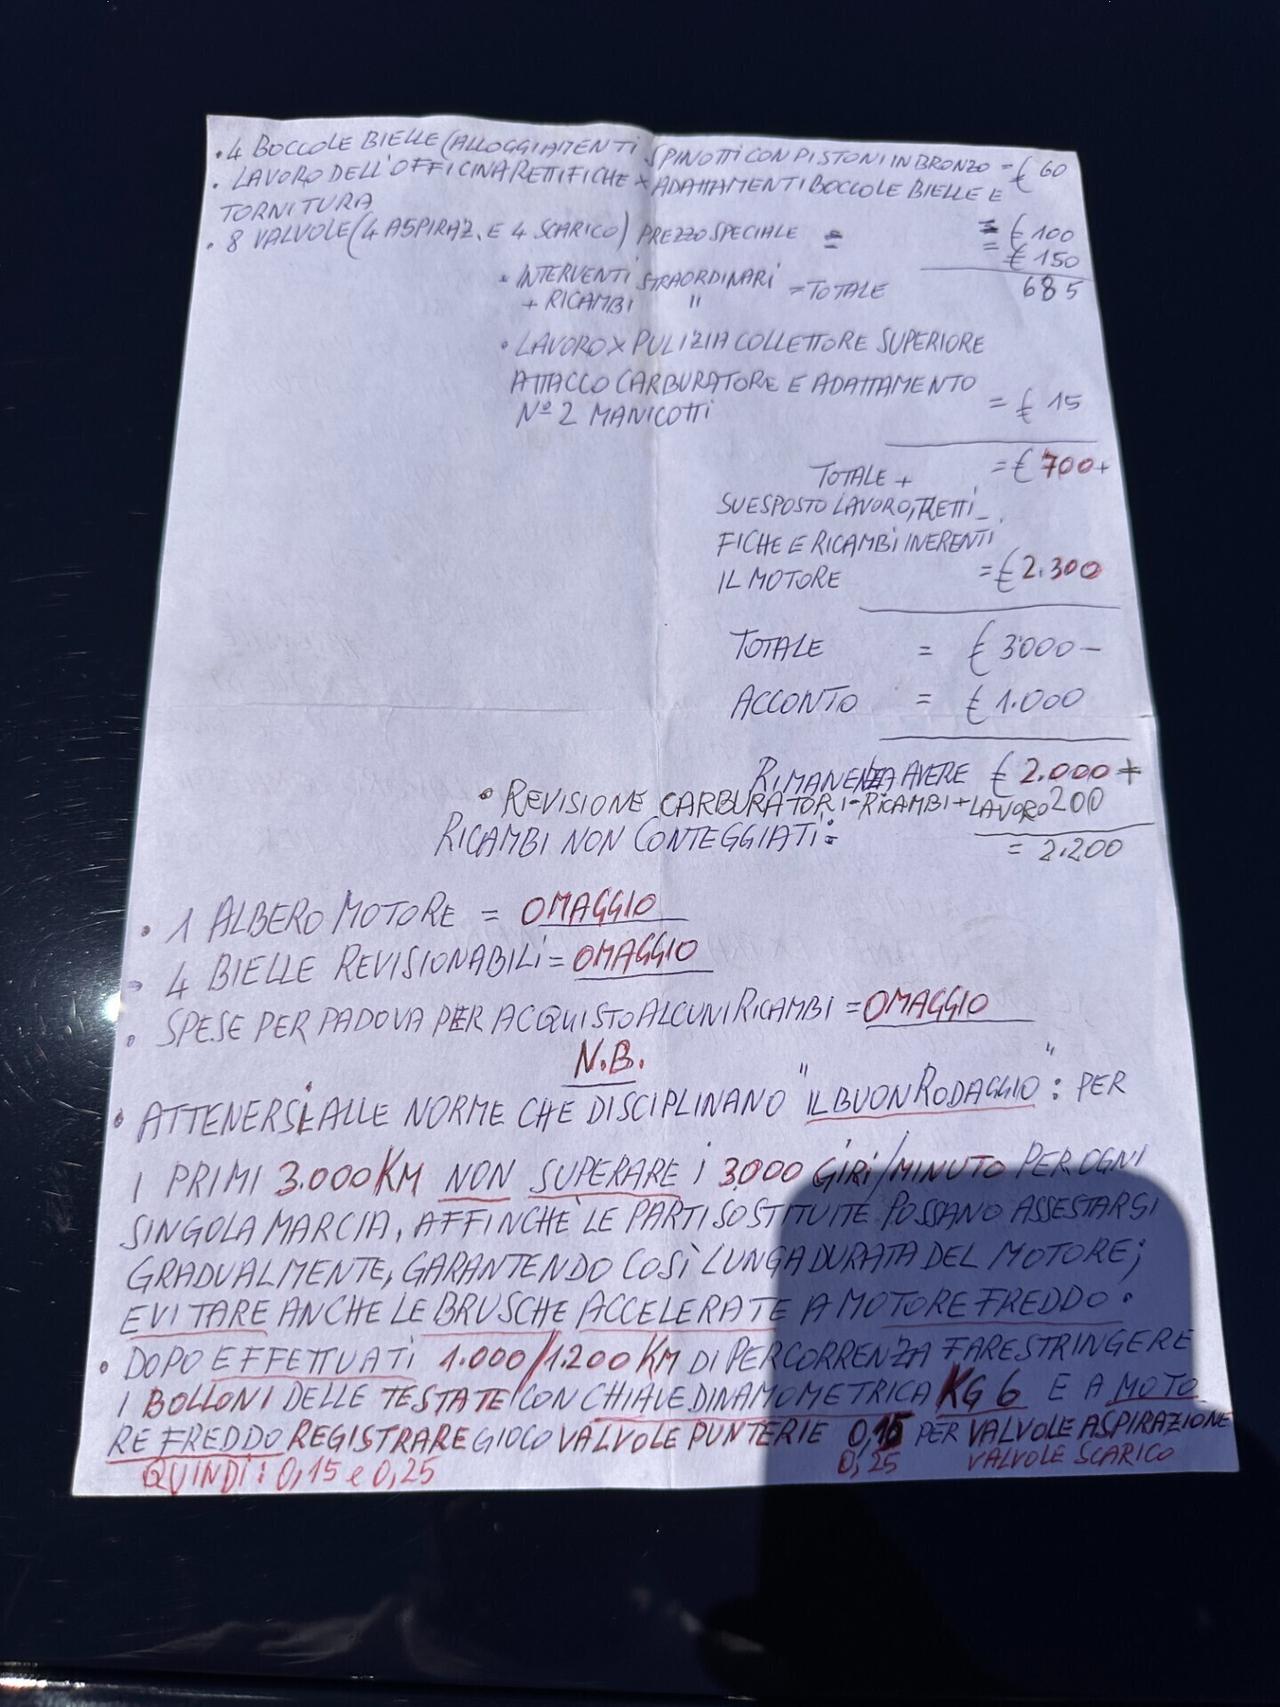 • 4 BOCCOLE BIELLE (ALLOGGIAMENTI SPINOTTI CON PISTONI IN BRONZO = € 60
• LAVORO DELL'OFFICINA RETTIFICHE X ADATTAMENTI BOCCOLE BIELLE E
TORNITURA = € 100
• 8 VALVOLE (4 ASPIRAZ. E 4 SCARICO) PREZZO SPECIALE = = € 150
• INTERVENTI STRAORDINARI = TOTALE 685
+ RICAMBI "
• LAVORO X PULIZIA COLLETTORE SUPERIORE
ATTACCO CARBURATORE E ADATTAMENTO
Nº 2 MANICOTTI = € 15
TOTALE + = € 700+
SUESPOSTO LAVORO, RETTI_
FICHE E RICAMBI INERENTI
IL MOTORE = € 2.300
TOTALE = € 3000 -
ACCONTO = € 1.000
RIMANENZA AVERE € 2.000 +
• REVISIONE CARBURATORI - RICAMBI + LAVORO 200
RICAMBI NON CONTEGGIATI: = 2.200
• 1 ALBERO MOTORE = OMAGGIO
- 4 BIELLE REVISIONABILI = OMAGGIO
• SPESE PER PADOVA PER ACQUISTO ALCUNI RICAMBI = OMAGGIO
N.B.
• ATTENERSI ALLE NORME CHE DISCIPLINANO "IL BUON RODAGGIO": PER
I PRIMI 3.000 KM NON SUPERARE i 3000 GIRI/MINUTO PER OGNI
SINGOLA MARCIA, AFFINCHÈ LE PARTI SOSTITUITE POSSANO ASSESTARSI
GRADUALMENTE, GARANTENDO COSÌ LUNGA DURATA DEL MOTORE;
EVITARE ANCHE LE BRUSCHE ACCELERATE A MOTORE FREDDO.
• DOPO EFFETTUATI 1.000/1.200 KM DI PERCORRENZA FARE STRINGERE
I BOLLONI DELLE TESTATE CON CHIAVE DINAMOMETRICA KG 6 E A MOTO
RE FREDDO REGISTRARE GIOCO VALVOLE PUNTERIE 0,15 PER VALVOLE ASPIRAZIONE
0,25 VALVOLE SCARICO
QUINDI: 0,15 e 0,25